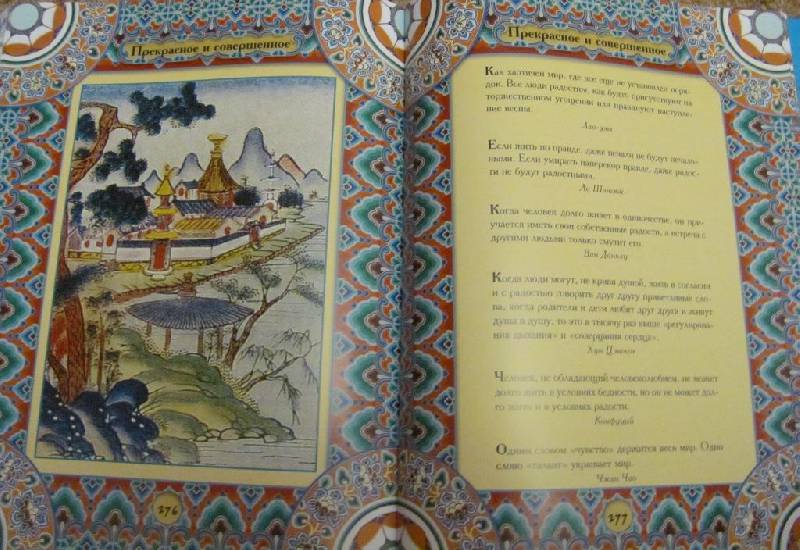 Прекрасное и совершенное
276
Прекрасное и совершенное
Как хаотичен мир, где все еще не установлен поря-
док. Все люди радостны, как будто присутствуют на
торжественном угощении или празднуют наступле-
ние весны.
Лао-цзы
Если жить по правде, даже печали не будут печаль-
ными. Если умирать наперекор правде, даже радос-
ти не будут радостными.
Ле
Когда человек долго живет в одиночестве, он при-
учается иметь свои собственные радости, а встреча с
другими людьми только смутит его.
Когда люди могут, не кривя душой, жить в согласии
и с радостью говорить друг другу приветливые сло-
ва, когда родители и дети любят друг друга и живут
душа в душу, то это в тысячу раз выше «регулирова-
ния дыхания» и «созерцания сердца».
Хун Цзычен
Человек, не обладающий человеколюбием, не может
долго жить в условиях бедности, но он не может дол-
го жить и в условиях радости.
Конфуций
Одним словом «чувство» держится весь мир. Одно
слово «талант» украшает мир.
Чжан Чао
277